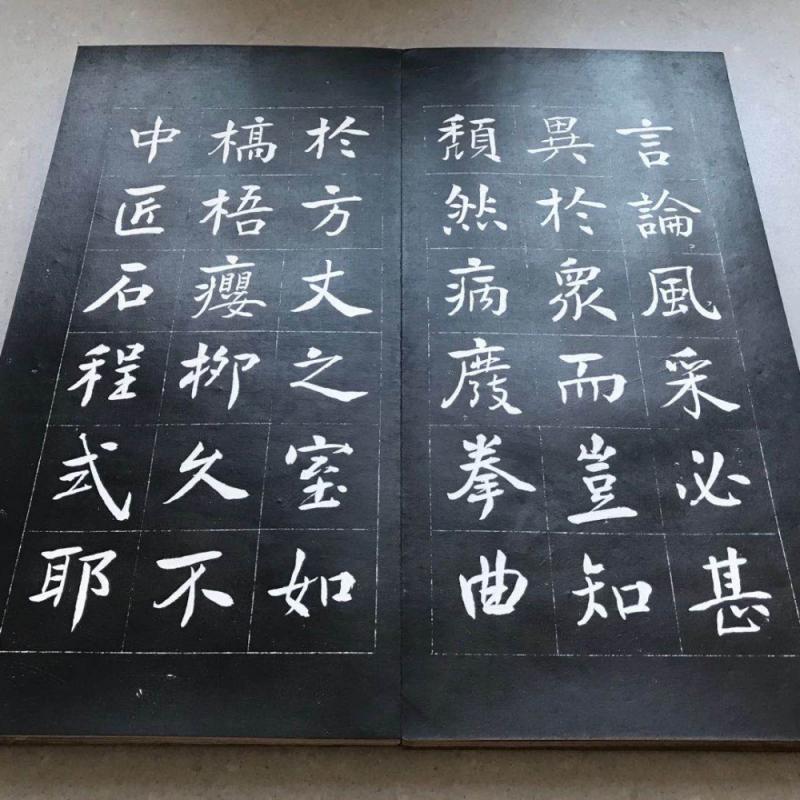 言論風采必甚
異於衆而豈知
頹然病廢拳曲
於方丈之室如
槁梧癭柳久不
中匠石程式耶